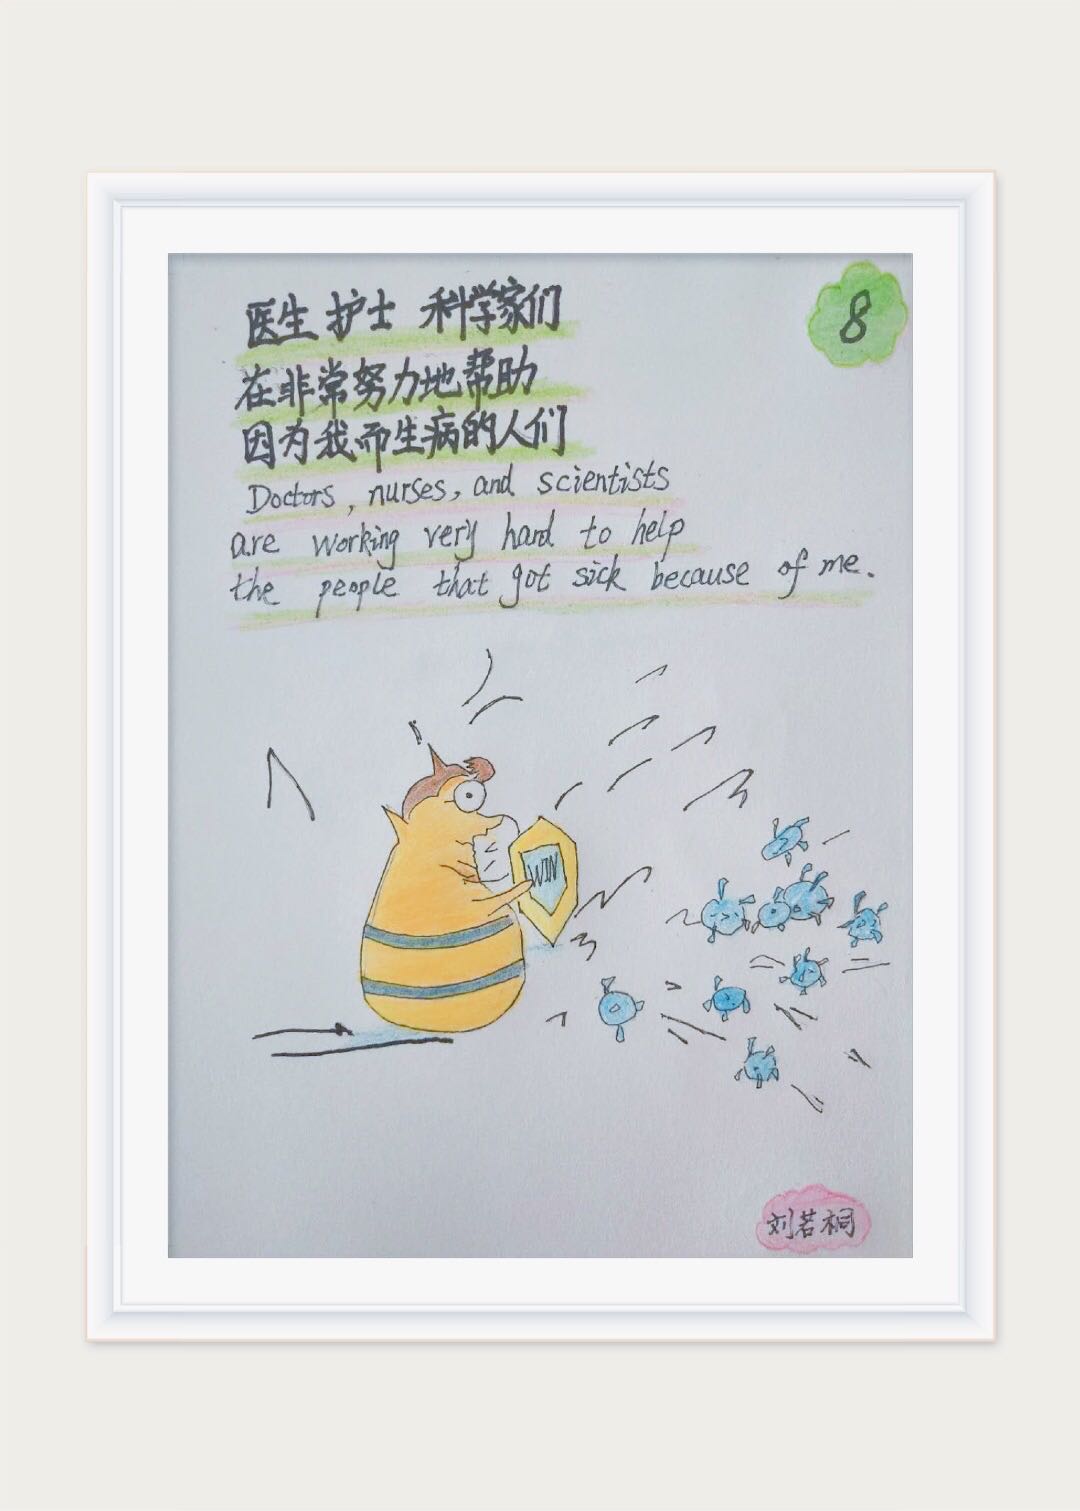 医生 护士 科学家们
8
在非常努力地帮助
因为我而生病的人们
Doctors, nurses, and scientists
are working very hard to help
the people that got sick because of me.
WIN
刘若桐